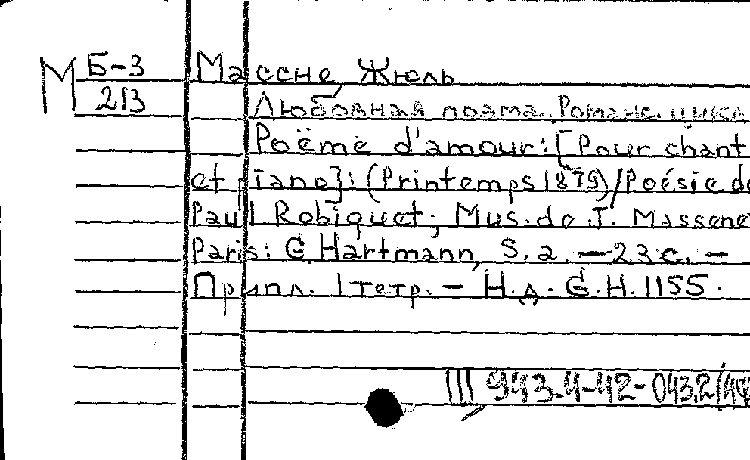 М Б-3
213
Массне, Жюль
Любовная поэма. Романс. цикл
Poëme d'amour: [Pour chant
et piano]: (Printemps 1879) / Poésie de
Paul Robiquet; Mus. de J. Massene
Paris: G. Hartmann, S. a. — 23 c. —
Припл. 1 тетр. — Н. д. G. H. 1155.
III 943.4-42-043.2